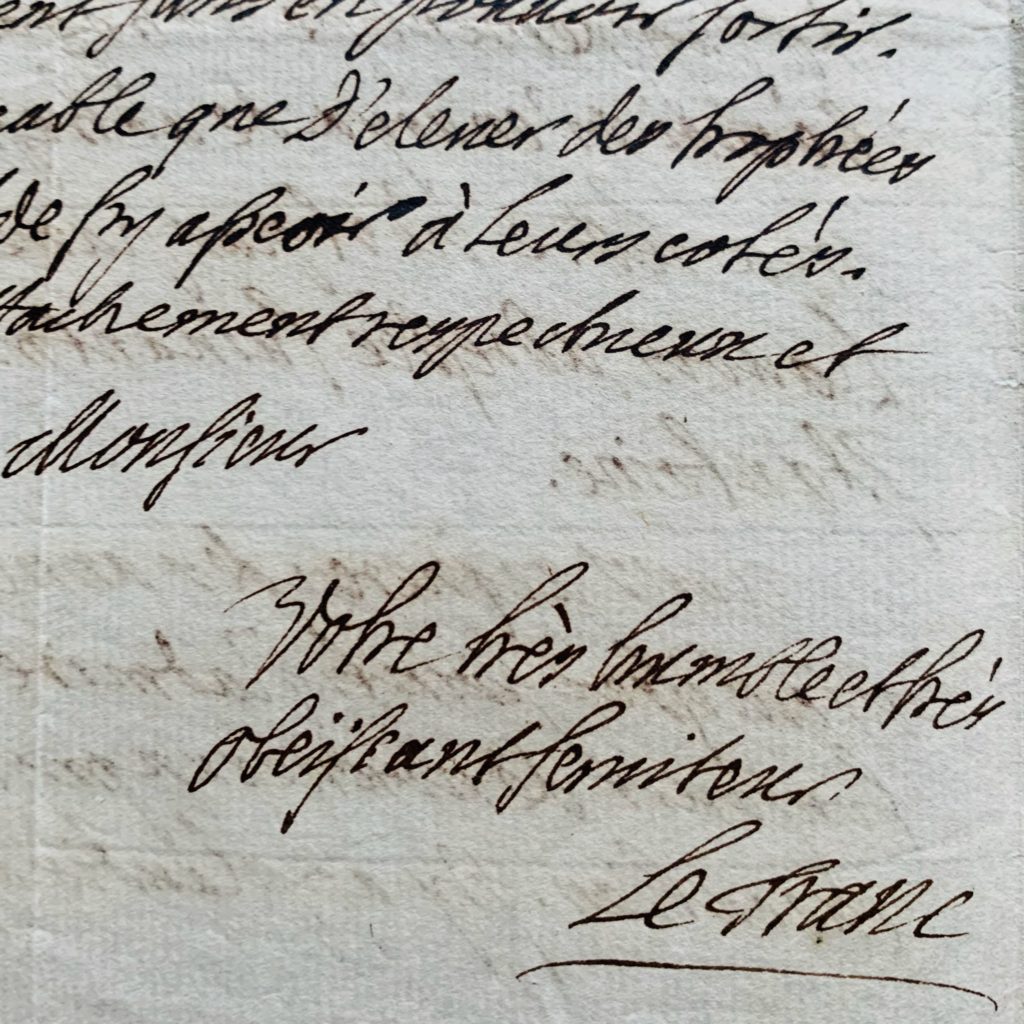 ent sans en pouvoir sortir.
cable que D'elever des trophées
de s'y asseoir à leurs cotés.
ttachement respectueux et
Monsieur
Votre très humble et très
obeissant serviteur
Le Franc